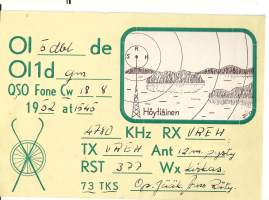 OI 5dbt de
OI1d gm
QSO Fone Cw 18 8
1952 at 1545
S R H
Höytiäinen
4740 KHz RX VREH
TX VREH Ant 12m
RST 377 Wx kirkas
73 TKS Op.